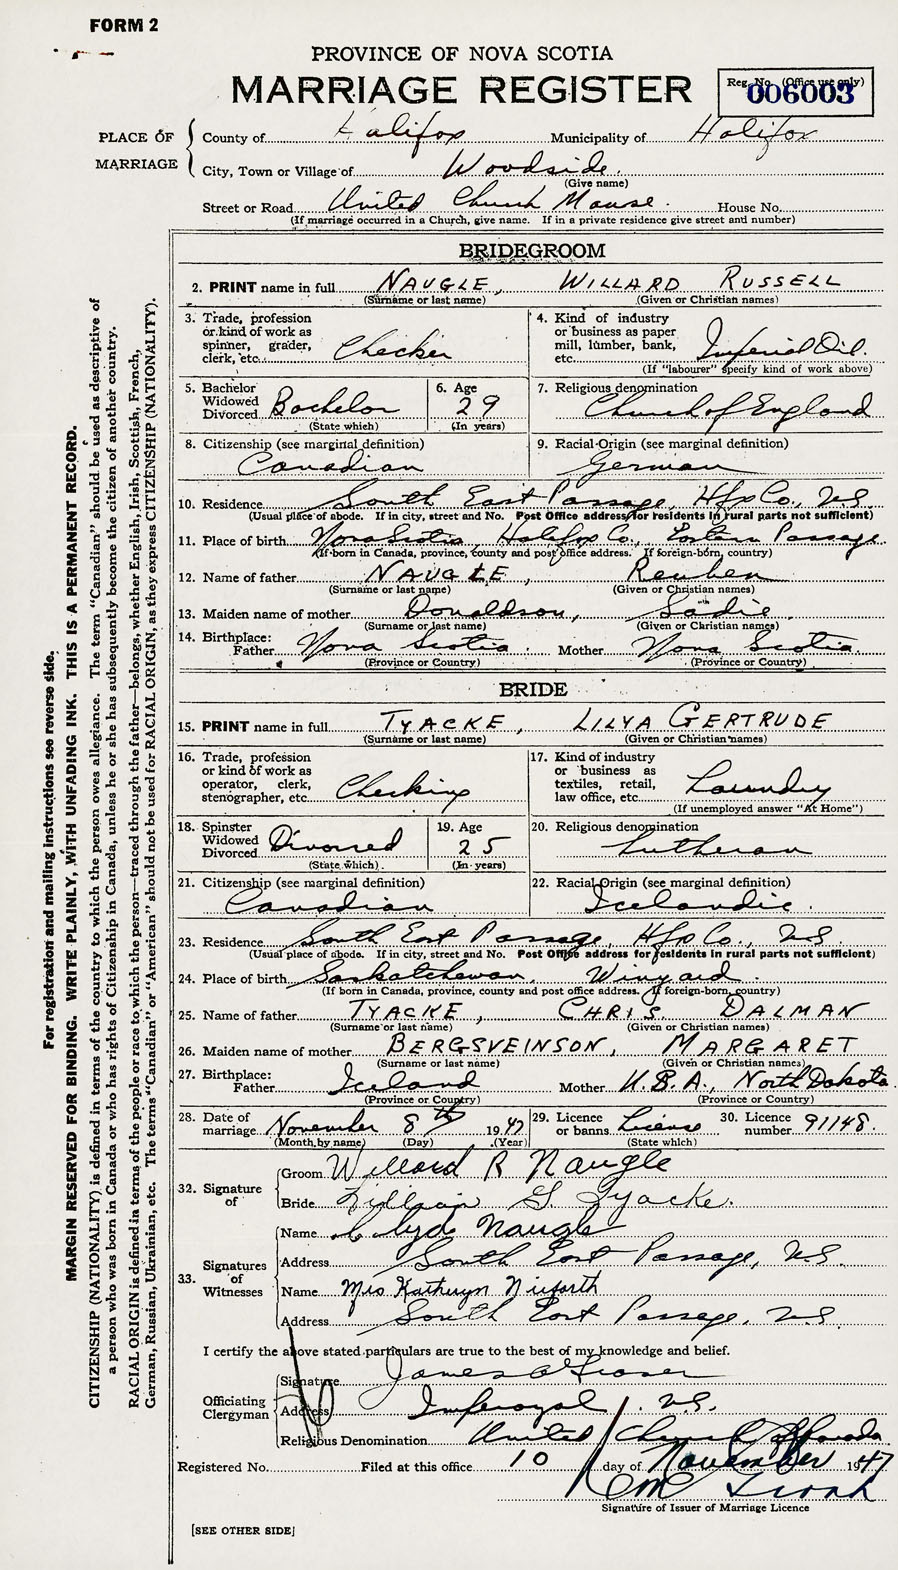 FORM 2
PROVINCE OF NOVA SCOTIA
MARRIAGE REGISTER
Reg. No. (Office use only)
006003
PLACE OF MARRIAGE
County of Halifax Municipality of Halifax
City, Town or Village of Woodside.
(Give name)
Street or Road United Church Manse. House No.
(If marriage occurred in a Church, give name. If in a private residence give street and number)
BRIDEGROOM
2. PRINT name in full NAUGLE, WILLARD RUSSELL
(Surname or last name) (Given or Christian names)
3. Trade, profession or kind of work as spinner, grader, clerk, etc. Checker
4. Kind of industry or business as paper mill, lumber, bank, etc. Imperial Oil.
(If "labourer" specify kind of work above)
5. Bachelor Widowed Divorced Bachelor
(State which)
6. Age 29
(In years)
7. Religious denomination
Church of England
8. Citizenship (see marginal definition)
Canadian
9. Racial Origin (see marginal definition)
German
10. Residence South East Passage, Hfx Co., N.S.
(Usual place of abode. If in city, street and No. Post Office address for residents in rural parts not sufficient)
11. Place of birth Nova Scotia, Halifax Co., Eastern Passage.
(If born in Canada, province, county and post office address. If foreign-born, country)
12. Name of father NAUGLE, Reuben
(Surname or last name) (Given or Christian names)
13. Maiden name of mother Donaldson, Sadie.
(Surname or last name) (Given or Christian names)
14. Birthplace: Father Nova Scotia Mother Nova Scotia.
(Province or Country) (Province or Country)
BRIDE
15. PRINT name in full TYACKE, LILYA GERTRUDE
(Surname or last name) (Given or Christian names)
16. Trade, profession or kind of work as operator, clerk, stenographer, etc. Checking
17. Kind of industry or business as textiles, retail, law office, etc. Laundry
(If unemployed answer "At Home")
18. Spinster Widowed Divorced Divorced
(State which)
19. Age 25
(In years)
20. Religious denomination
Lutheran
21. Citizenship (see marginal definition)
Canadian
22. Racial Origin (see marginal definition)
Icelandic.
23. Residence South East Passage, Hfx Co., N.S.
(Usual place of abode. If in city, street and No. Post Office address for residents in rural parts not sufficient)
24. Place of birth Saskatchewan, Winyard
(If born in Canada, province, county and post office address. If foreign-born, country)
25. Name of father TYACKE, CHRIS DALMAN
(Surname or last name) (Given or Christian names)
26. Maiden name of mother BERGSVEINSON, MARGARET
(Surname or last name) (Given or Christian names)
27. Birthplace: Father Iceland Mother U.S.A., North Dakota
(Province or Country) (Province or Country)
28. Date of marriage November 8th 1947
(Month by name) (Day) (Year)
29. Licence or banns License
(State which)
30. Licence number 91148.
32. Signature of
Groom Willard R Naugle
Bride Lillian G. Tyacke.
33. Signatures of Witnesses
Name Clyde Naugle
Address South East Passage, N.S.
Name Mrs Kathryn Nieforth
Address South East Passage, N.S.
I certify the above stated particulars are true to the best of my knowledge and belief.
Officiating Clergyman
Signature James A Fraser
Address Imperoyal, N.S.
Religious Denomination United Church of Canada
Registered No. Filed at this office 10 day of November 1947
Signature of Issuer of Marriage Licence
[SEE OTHER SIDE]
For registration and mailing instructions see reverse side.
MARGIN RESERVED FOR BINDING. WRITE PLAINLY, WITH UNFADING INK. THIS IS A PERMANENT RECORD.
CITIZENSHIP (NATIONALITY) is defined in terms of the country to which the person owes allegiance. The term "Canadian" should be used as descriptive of
a person who was born in Canada or who has rights of Citizenship in Canada, unless he or she has subsequently become the citizen of another country.
RACIAL ORIGIN is defined in terms of the people or race to which the person—traced through the father—belongs, whether English, Irish, Scottish, French,
German, Russian, Ukrainian, etc. The terms "Canadian" or "American" should not be used for RACIAL ORIGIN, as they express CITIZENSHIP (NATIONALITY).